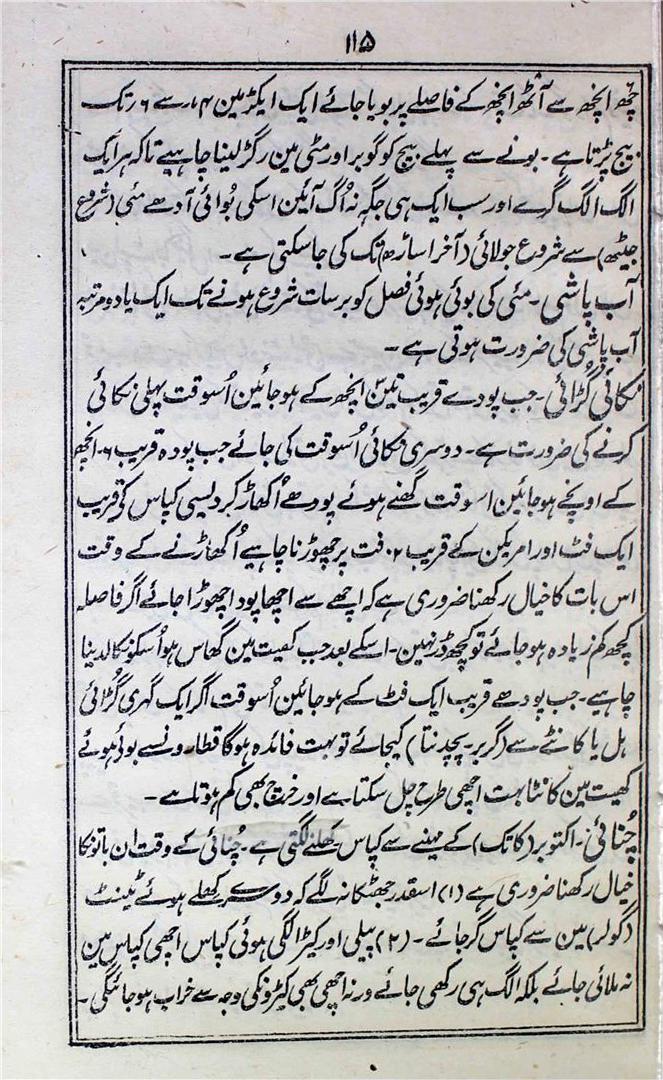 ۱۱۵
چھ انچھ سے آٹھ انچھ کے فاصلے پر بویا جائے ایک ایکڑ مین ۴ر سے ۶ رتک
بیج پڑتا ہے۔ بونے سے پہلے بیج کو گوبر اور مٹی مین رگڑ لینا چاہیے تاکہ ہر ایک
الگ الگ گرے اور سب ایک ہی جگہ نہ اُگ آئین اسکی بُوائی آدھے مئی (شروع
جیٹھ) سے شروع جولائی (آخر اساڑھ) تک کی جاسکتی ہے۔
آب پاشی۔ مئی کی بوئی ہوئی فصل کو برسات شروع ہونے تک ایک یا دو مرتبہ
آب پاشی کی ضرورت ہوتی ہے۔
نکائی گُڑائی۔ جب پودے قریب تین ۳ انچھ کے ہو جائین اُسوقت پہلی نکائی
کرنے کی ضرورت ہے۔ دوسری نکائی اُسوقت کی جائے جب پودہ قریب ۶۔ انچھ
کے اونچے ہو جائین اسوقت گھنے ہوئے پودھے اُکھاڑ کر دیسی کپاس کو قریب
ایک فٹ اور امریکن کے قریب ۲ فٹ پر چھوڑنا چاہیے اُکھاڑنے کے وقت
اس بات کا خیال رکھنا ضروری ہے کہ اچھے سے اچھا پودا چھوڑا جائے اگر فاصلہ
کچھ کم زیادہ ہو جائے تو کچھ ڈر نہین۔ اسکے بعد جب کھیت مین گھاس ہو اُسکو نکالدینا
چاہیے۔ جب پودھے قریب ایک فٹ کے ہو جائین اُسوقت اگر ایک گہری گُڑائی
ہل یا کانٹے سے (گربر۔ پچدنتا) کیجائے تو بہت فائدہ ہوگا قطارونسے بوئی ہوئے
کھیت مین کانٹا بہت اچھی طرح چل سکتا ہے اور خرچ بھی کم ہوتا ہے۔
چُنائی۔ اکتوبر (کاتک) کے مہینے سے کپاس کھلنے لگتی ہے۔ چُنائی کے وقت ان باتونکا
خیال رکھنا ضروری ہے (۱) اسقدر جھٹکا نہ لگے کہ دوسرے کھلے ہوئے ٹینٹ
(گولر) مین سے کپاس گر جائے۔ (۲) پیلی اور کیڑا لگی ہوئی کپاس اچھی کپاس مین
نہ ملائی جائے بلکہ الگ ہی رکھی جائے ورنہ اچھی بھی کیڑونکی وجہ سے خراب ہو جائیگی۔